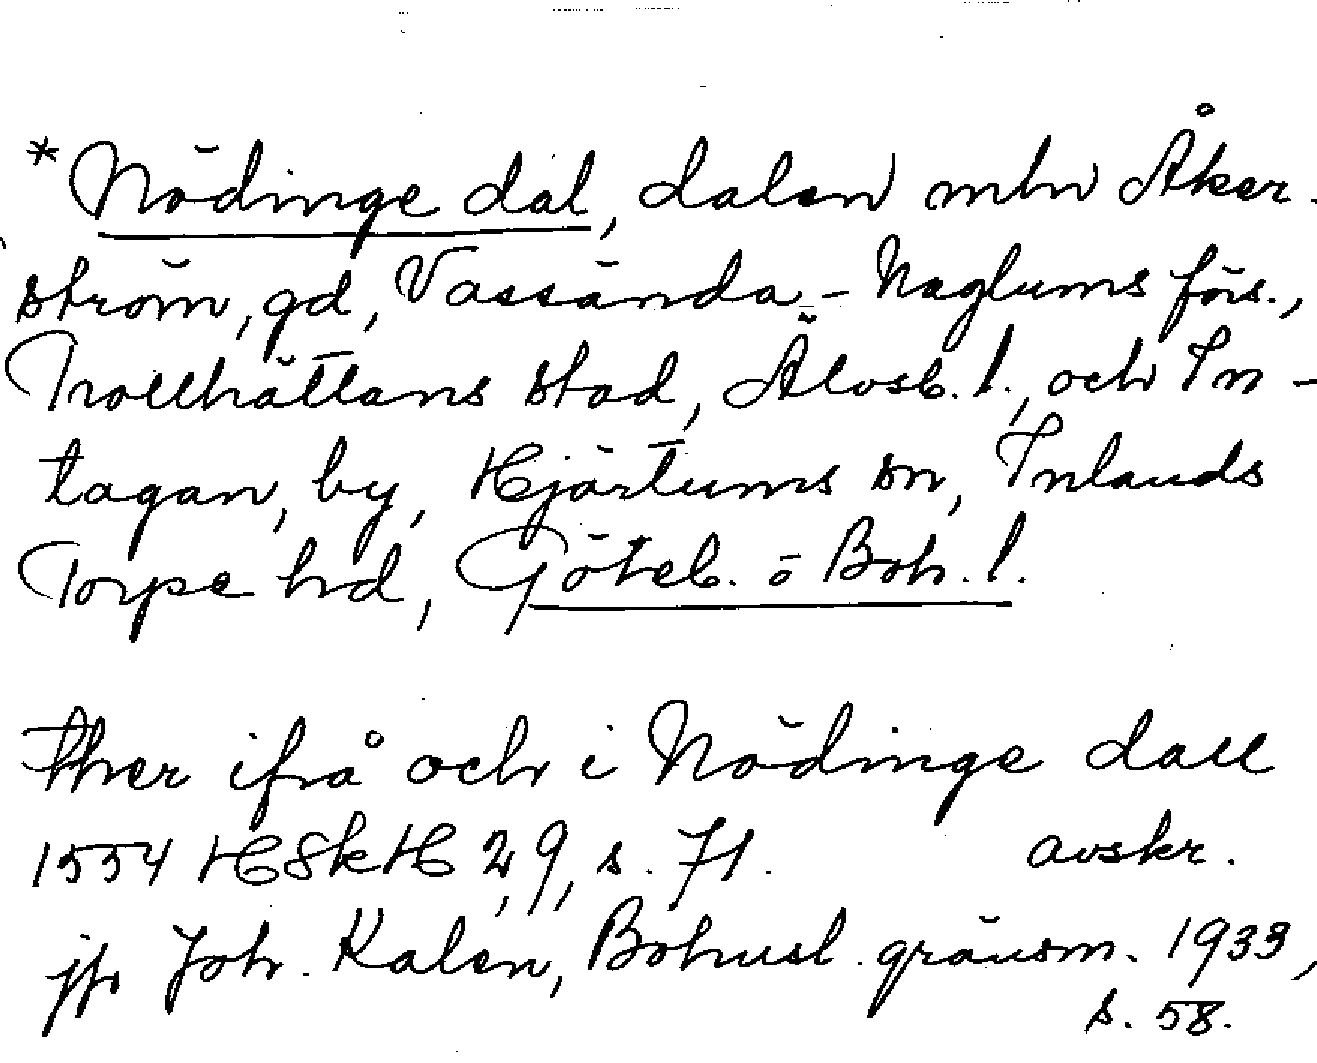 *Nödinge dal, dalen mln Åker-
ström, gd, Vassända-Naglums förs.,
Trollhättans stad, Älvsb. l., och In-
tagan, by, Hjärtums sn, Inlands
Torpe hd, Göteb. o Boh. l.
Ther ifrå och i Nödinge dall
1554 HSkH 2,9, s. 71. avskr.
jfr Joh. Kalén, Bohusl. gränsm. 1933,
s. 58.